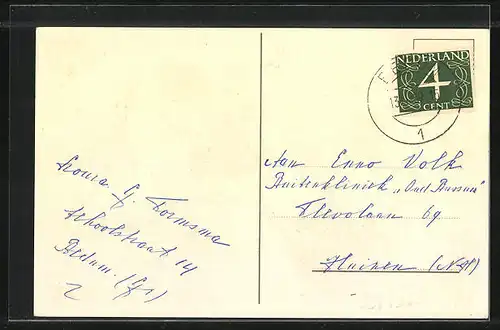 NEDERLAND
4
CENT
13
1
Aan Enno Volk
Buitenkliniek „Oud Bussem"
Flevolaan 69
Huizen (N.H)
G. Formsma
Schoolstraat 14
Bedum. (Gr)